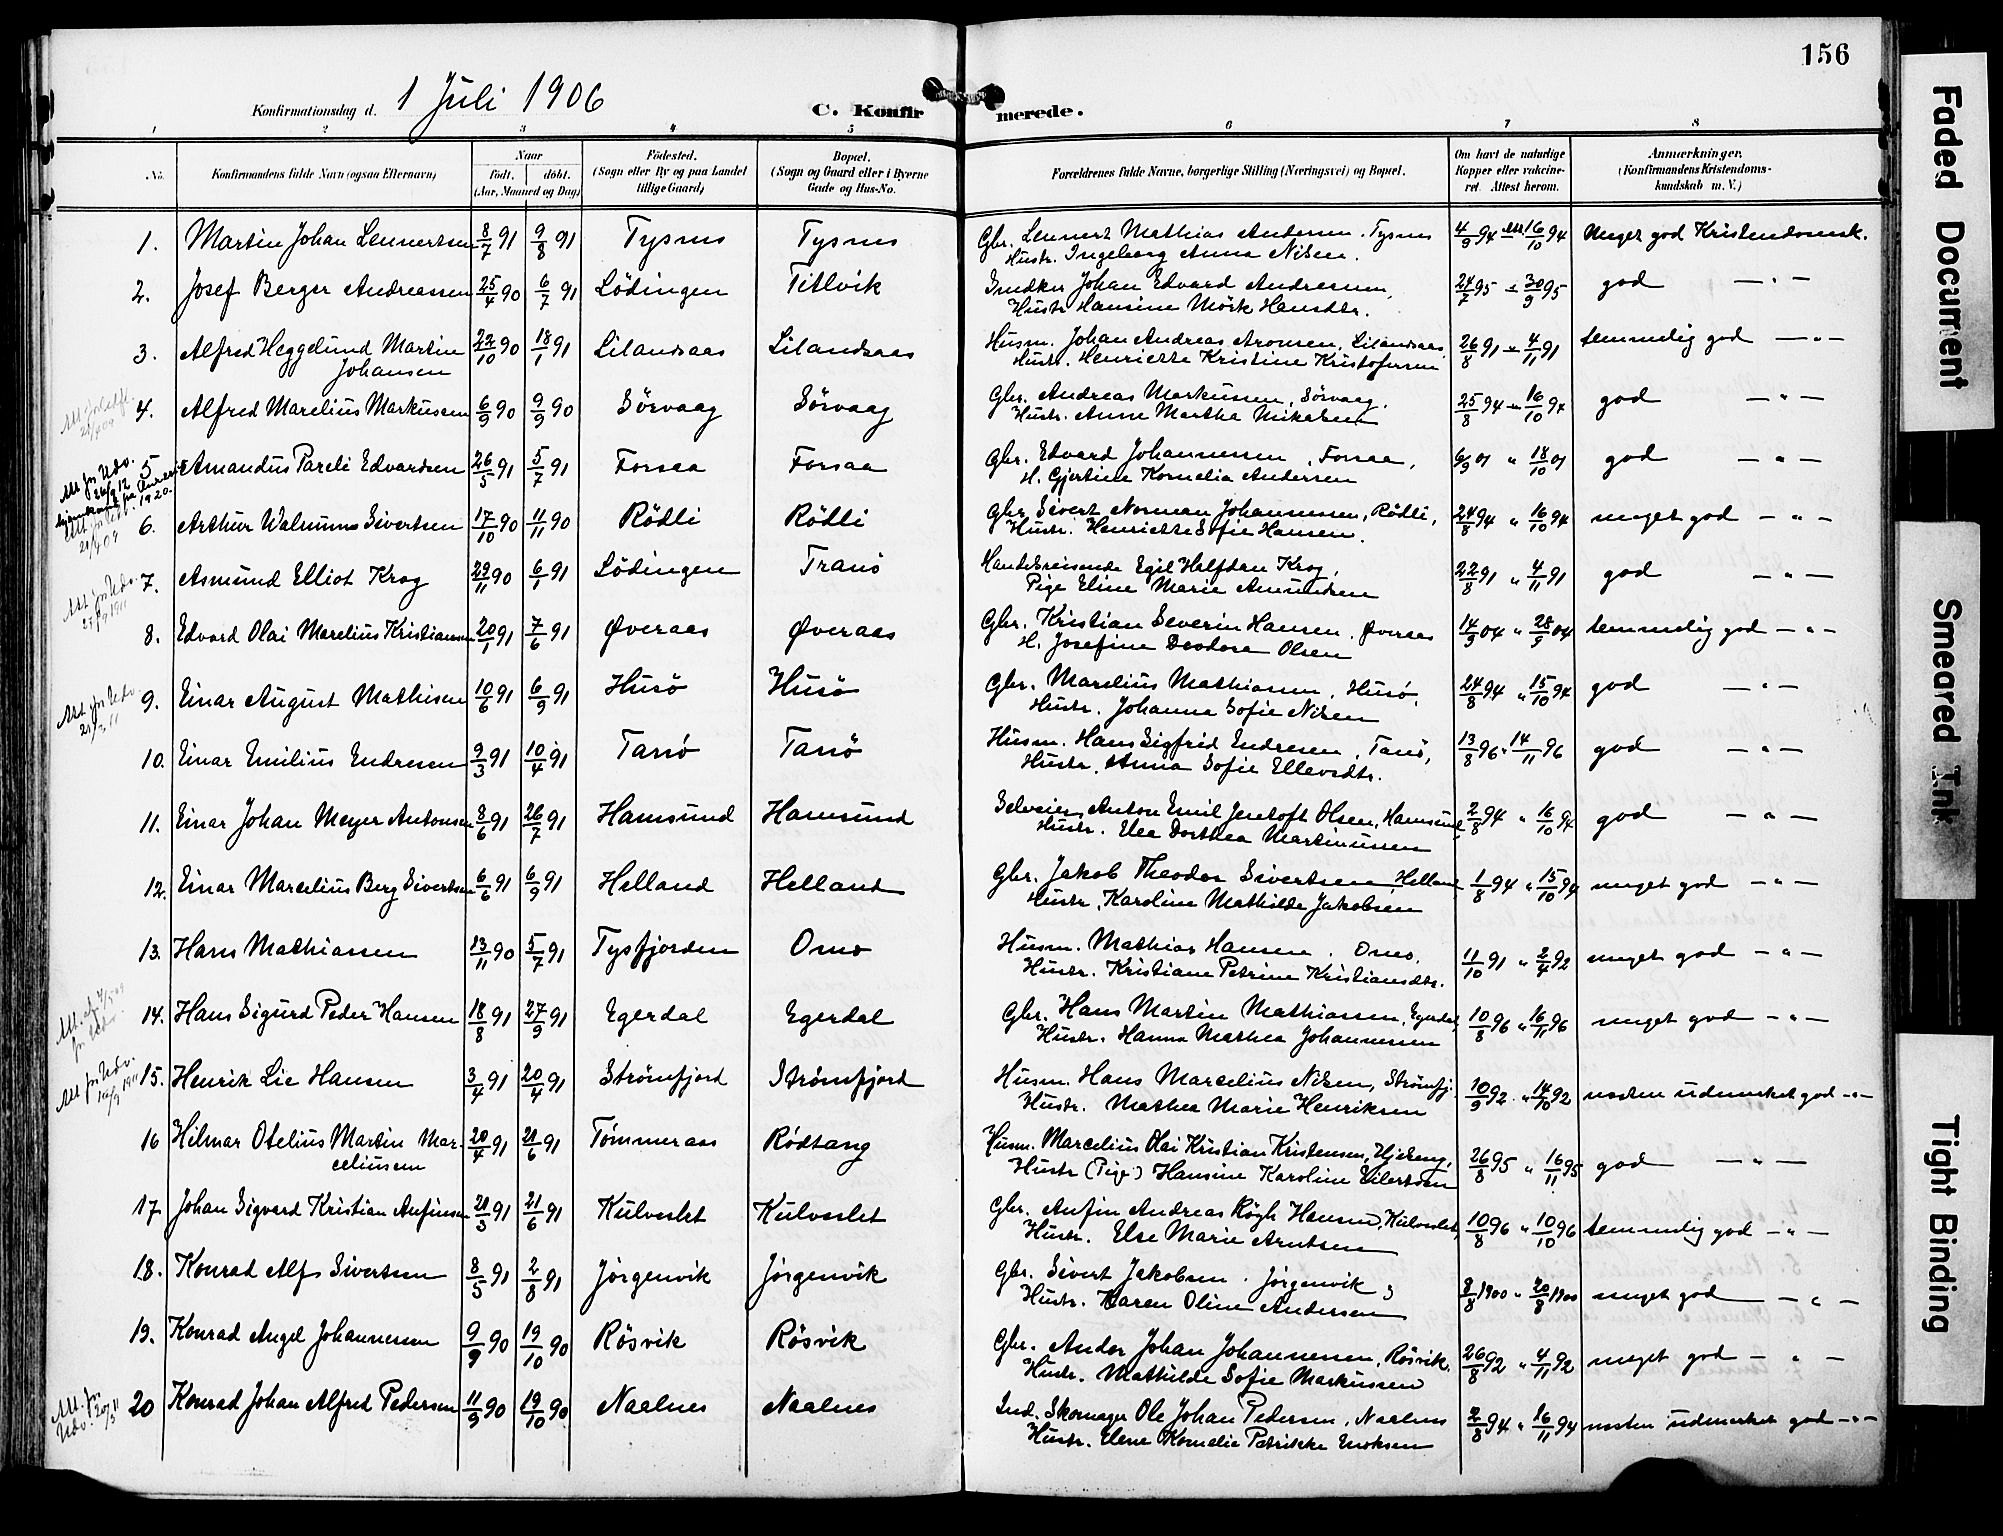 156
Konfirmationsdag d. 1 Juli 1906
C. Konfirmerede.
1 2 3 4 5 6 7 8
No.
Konfirmandens fulde Navn (ogsaa Efternavn)
Naar
født. døbt.
(Aar, Maaned og Dag)
Fødested.
(Sogn eller By og paa Landet
tillige Gaard)
Bopæl.
(Sogn og Gaard eller i Byerne
Gade og Hus-No.
Forældrenes fulde Navne, borgerlige Stilling (Næringsvei) og Bopæl.
Om havt de naturlige
Kopper eller vakcine-
ret. Attest herom.
Anmærkninger.
(Konfirmandens Kristendoms-
kundskab m. V.)
1. Martin Johan Lennertsen 8/7 91 9/8 91 Tysnes Tysnes Gbr. Lennert Mathias Andersen. Tysnes 4/9 94 16/10 94 Meget god Kristendomsk.
Hustr. Ingeborg Anna Nilsen.
2. Josef Berger Andreassen 25/4 90 6/7 91 Lödingen Titlvik Johan Edvard Andreassen, 24/7 95 30/9 95 god — " —
Hustr. Hansine Mörk Hansdtr.
3. Alfred Heggelund Martin 22/10 90 18/1 91 Lilandsaas Lilandsaas Husm. Johan Andreas Aronsen, Lilandsaas 26/8 91 4/11 91 temmelig god — " —
Johansen Hustr. Henriette Kristine Kristofersen
4. Alfred Marelius Markussen 6/9 90 9/9 90 Sörvaag Sörvaag Gbr. Andreas Markussen, Sörvaag. 25/8 94 16/10 94 god — " —
Hustr. Anne Martha Mikalsen
5 Amandus Pareli Edvardsen 26/5 91 5/7 91 Forsaa Forsaa Gbr. Edvard Johannessen, Forsaa, 6/9 01 " 18/10 01 god — " —
H. Gjertine Kornelia Andersen
6. Arthur Walnums Sivertsen 17/10 90 11/11 90 Rödli Rödli Gbr. Sivert Norman Johannessen, Rödli, 24/8 94 " 16/10 94 meget god — " —
Hustr. Henriette Sofie Hansen.
7. Asmund Elliot Krog 29/11 90 6/1 91 Lödingen Tranö Handelsreisende Egil Halfdan Krog, 22/8 91 " 4/11 91 god — " —
Pige Eline Marie Amundsen
8. Edvard Olai Marelius Kristiansen 20/1 91 7/6 91 Øveraas Øveraas Gbr. Kristian Severin Hansen. Øveraas 14/9 04 " 28/9 04 temmelig god — " —
H. Josefine Deodora Olsen
9. Einar August Mathisen 10/6 91 6/9 91 Husö Husö Gbr. Marelius Mathiassen, Husö, 24/8 94 " 15/10 94 god — " —
Hustr. Johanna Sofie Nilsen
10. Einar Emilius Endresen 9/3 91 10/4 91 Tansö Tansö Husm. Hans Sigfrid Endresen, 13/8 96 " 14/11 96 god — " —
Hustr. Anna Sofie Ellevsdtr.
11. Einar Johan Meyer Antonsen 8/6 91 26/7 91 Hamsund Hamsund Selveier Anton Emil Jentoft Olsen, Hamsund, 2/8 94 " 16/10 94 god — " —
Hustr. Elea Dorthea Martinussen
12. Einar Marcelius Berg Sivertsen 6/6 91 6/9 91 Helland Helland Gbr. Jakob Theodor Sivertsen Helland 1/8 94 " 15/10 94 meget god — " —
Hustr. Karoline Mathilde Jakobsen
13. Hans Mathiassen 13/11 90 5/7 91 Tysfjorden Omo Husm. Mathias Hansen. Omo, 11/10 91 " 2/4 92 meget god — " —
Hustr. Kristiane Petrine Kristiansdtr.
14. Hans Sigurd Peder Hansen 18/8 91 27/9 91 Egerdal Egerdal Gbr. Hans Martin Mathiassen, Egerdal 10/8 96 " 16/11 96 meget god — " —
Hustr. Hanna Mathea Johannessen
15. Henrik Lie Hansen 3/4 91 20/4 91 Strömfjord Strömfjord Husm. Hans Marcelius Nilsen, Strömfj. 10/9 92 " 14/10 92 næsten udmerket god — " —
Hustr. Mathea Marie Henriksen
16 Hilmar Otelius Martin Mar- 20/4 91 21/6 91 Tömmeraas Rödtang Husm. Marcelius Olai Kristian Kristensen, 26/8 95 " 16/11 95 god — " —
celiussen Hustr (Pige) Hansine Karoline Eilertsen
17 Johan Sigvard Kristian Anfinsen 21/3 91 21/6 91 Kulveslet Kulveslet Gbr. Anfin Andreas Rögh Hansen, Kulveslet 10/8 96 " 10/10 96 temmelig god — " —
Hustr. Else Marie Arntsen
18. Konrad Alfs Sivertsen 8/5 91 2/8 91 Jörgenvik Jörgenvik Gbr. Sivert Jakobsen. Jörgenvik, 8/8 1900 " 20/8 1900 meget god — " —
Hustr. Karen Oline Andersen
19. Konrad Angel Johannessen 9/9 90 19/10 90 Rösvik Rösvik Gbr. Andor Johan Johannessen, Rösvik. 26/8 92 " 4/11 92 meget god — " —
Hustr. Mathilde Sofie Markussen
20 Konrad Johan Alfred Pedersen 11/9 90 19/10 90 Naalnes Naalnes Ind. Skomager Ole Johan Pedersen, Naalnes 2/8 94 " 16/11 94 næsten udmerket god — " —
Hustr. Elene Kornelie Petrikke Enoksen
Faded Document
Smeared Ink
Tight Binding